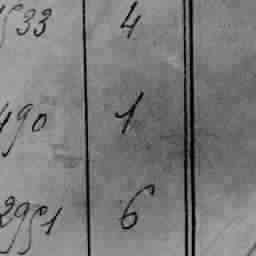 533 4
490 1
2951 6